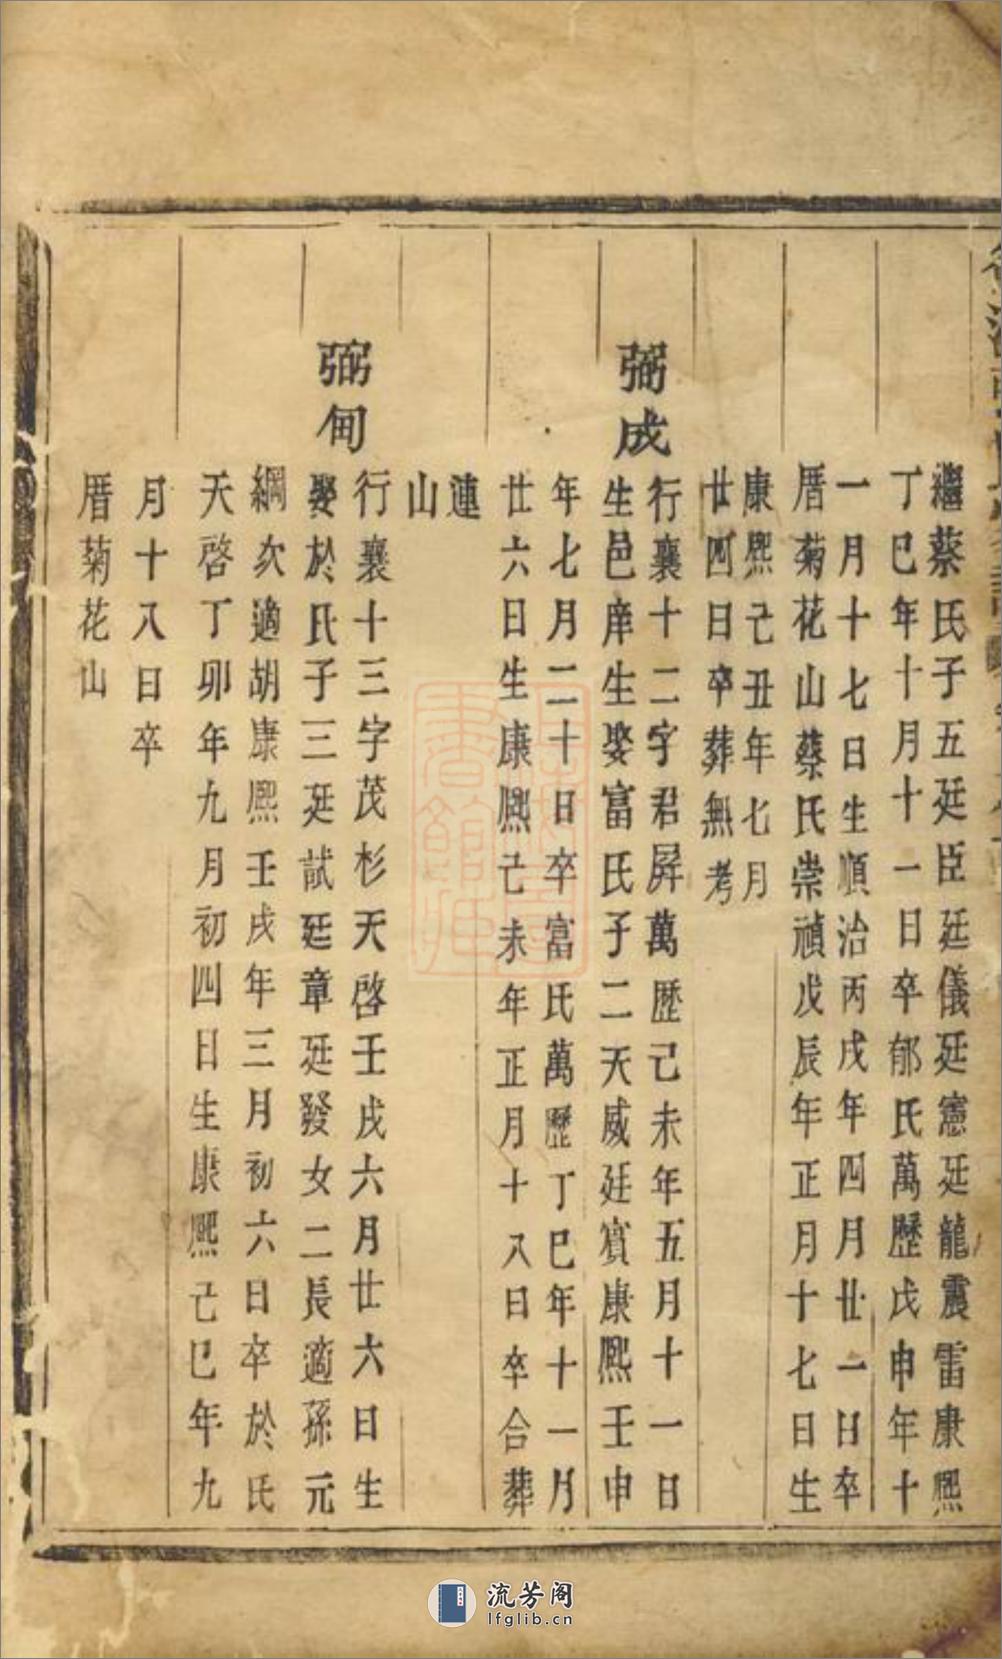 繼蔡氏子五廷臣廷儀廷憲廷龍震雷康熙
丁巳年十月十一日卒郁氏萬歷戊申年十
一月十七日生順治丙戌年四月廿一日卒
厝菊花山蔡氏崇禎戊辰年正月十七日生
康熙己丑年七月
廿四日卒葬無考
弼成
行襄十二字君屏萬歷己未年五月十一日
生邑庠生娶富氏子二天威廷賓康熙壬申
年七月二十日卒富氏萬歷丁巳年十一月
廿六日生康熙己未年正月十八日卒合葬
蓮
山
弼甸
行襄十三字茂杉天啓壬戌六月廿六日生
娶於氏子三廷試廷章廷發女二長適孫元
綱次適胡康熙壬戌年三月初六日卒於氏
天啓丁卯年九月初四日生康熙己巳年九
月十八日卒
厝菊花山
流芳阁
lfglib.cn